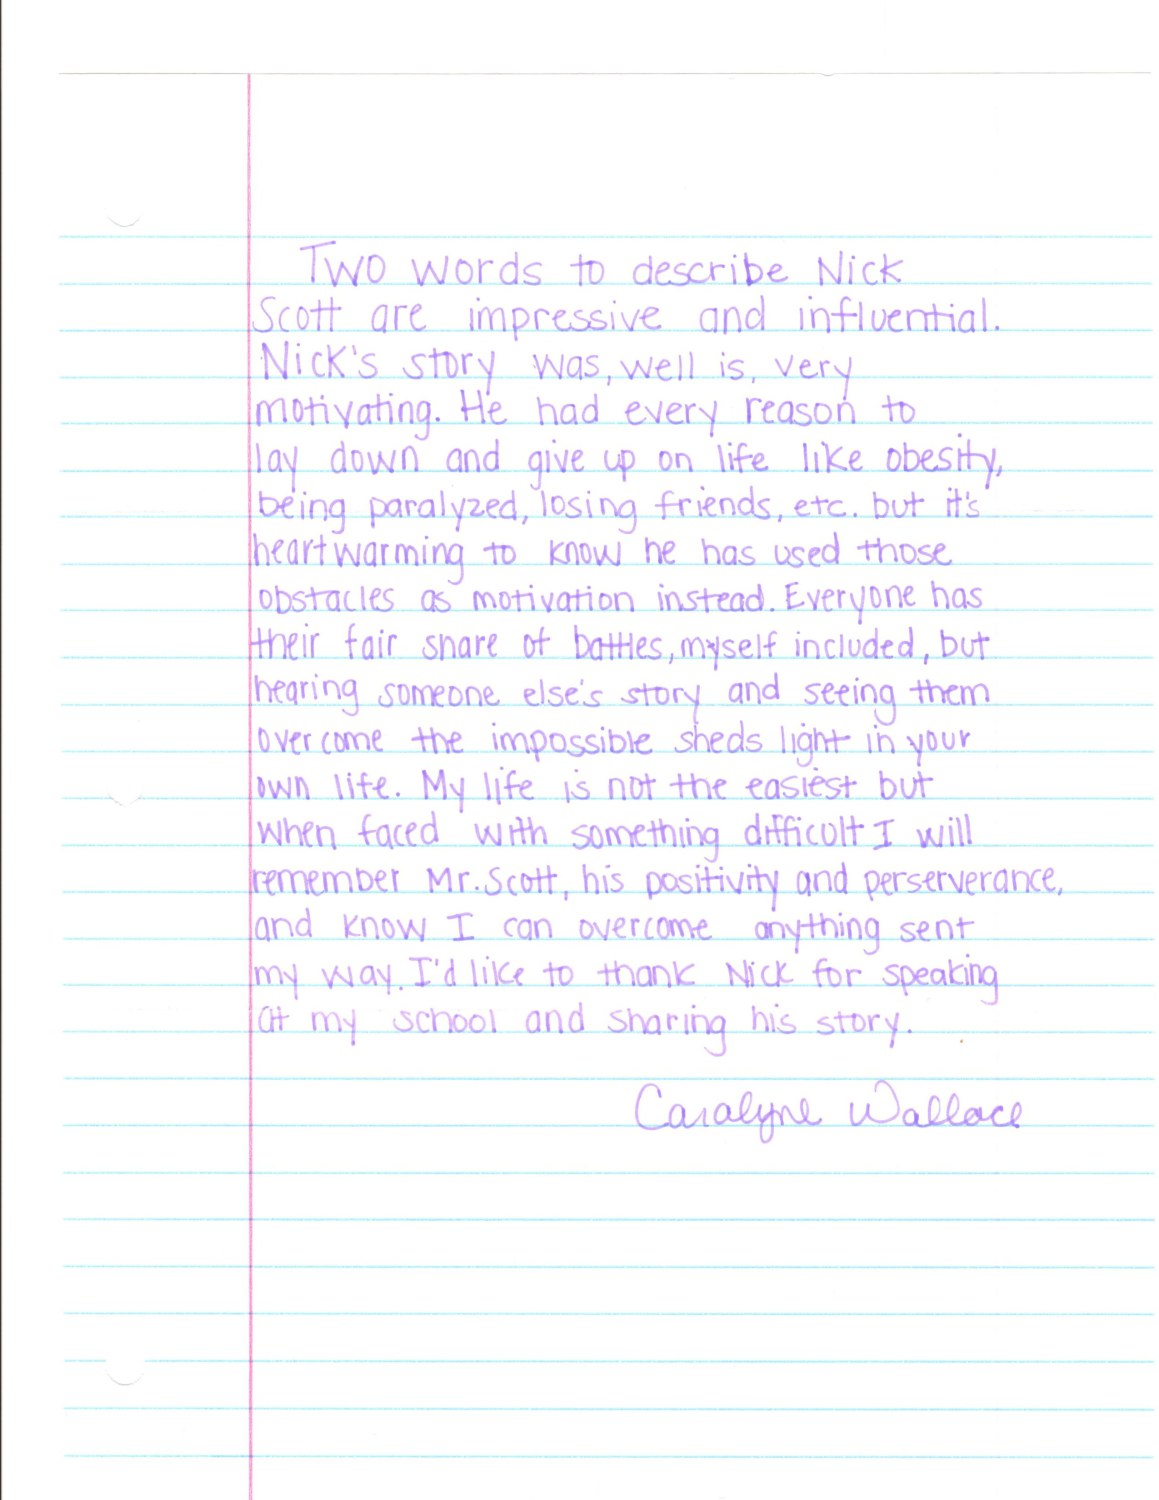 Two words to describe Nick
Scott are impressive and influential.
Nick's story was, well is, very
motivating. He had every reason to
lay down and give up on life like obesity,
being paralyzed, losing friends, etc. but it's
heartwarming to know he has used those
obstacles as motivation instead. Everyone has
their fair share of battles, myself included, but
hearing someone else's story and seeing them
overcome the impossible sheds light in your
own life. My life is not the easiest but
when faced with something difficult I will
remember Mr. Scott, his positivity and perserverance,
and know I can overcome anything sent
my way. I'd like to thank Nick for speaking
at my school and sharing his story.
Caralyne Wallace